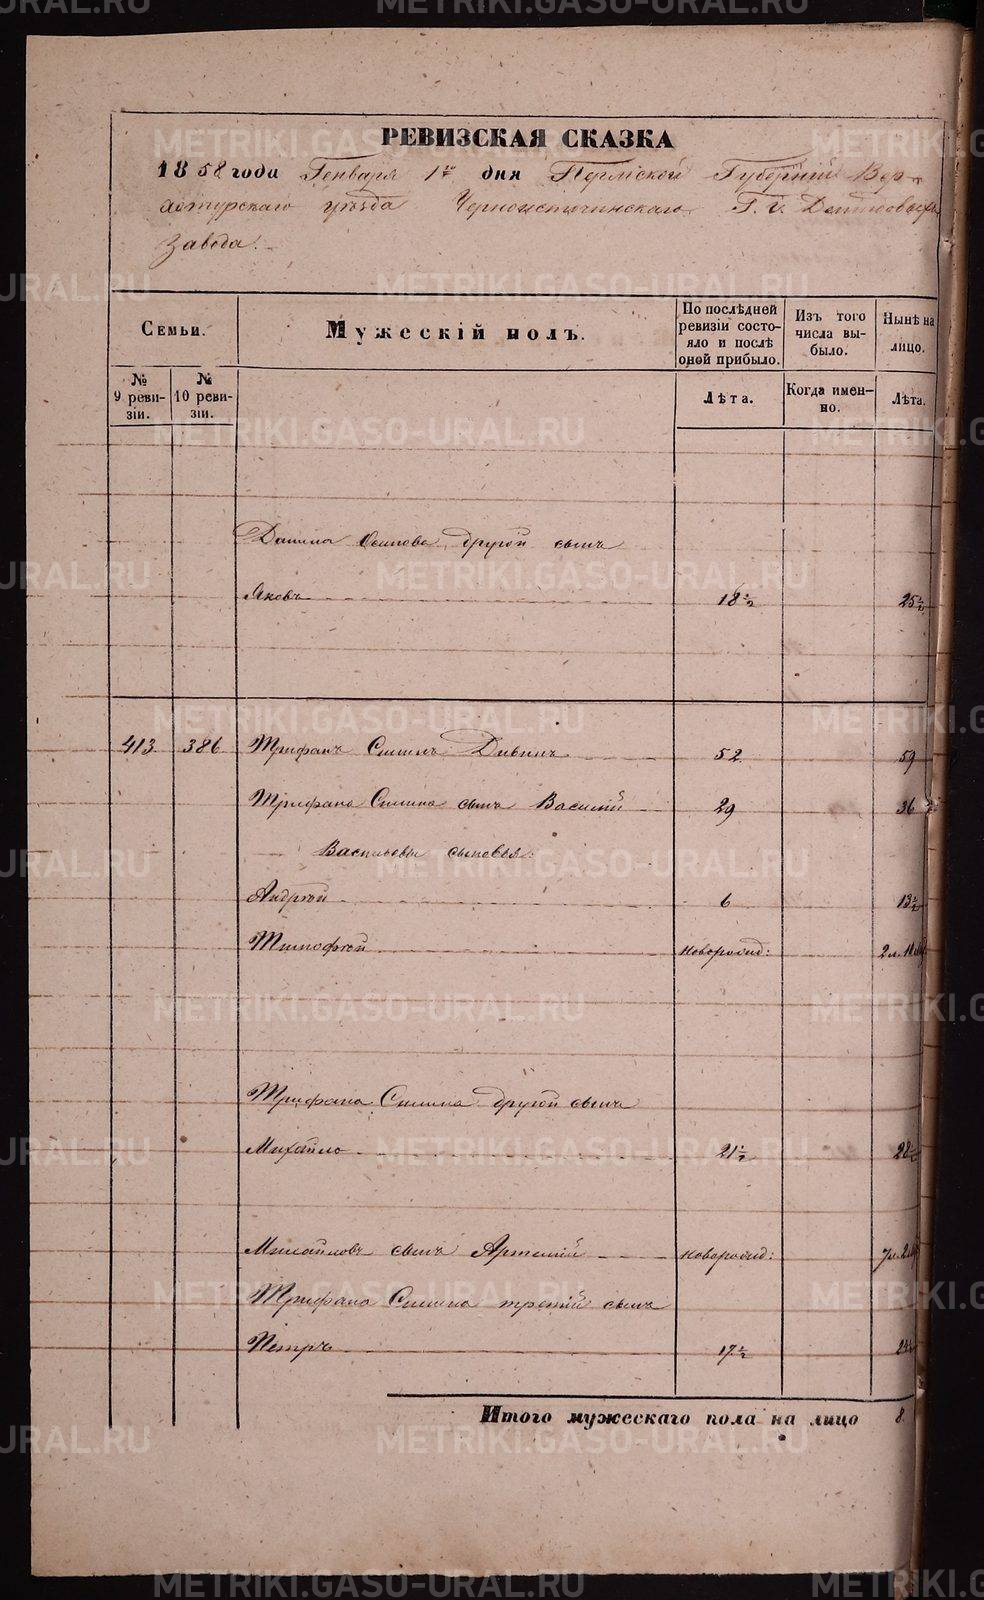 РЕВИЗСКАЯ СКАЗКА
1858 года Генваря 1го дня Пермской Губернии Вер-
хотурскаго уезда Черноисточинскаго Г.г. Демидовыхъ
Завода.
Семьи.
Мужескій полъ.
По послѣдней ревизіи состояло и послѣ оней прибыло.
Изъ того числа выбыло.
Нынѣ на лицо.
№ 9 ревизіи.
№ 10 ревизіи.
Лѣта.
Когда именно.
Лѣта.
Данила Осипова другой сынъ
Яковъ 18 ½ 25 ½
413. 386 Трифанъ Силинъ 52 59
Трифана Силина сынъ Василій 29 36
Васильевы сыновья:
Андрей 6 13 ½
Тимофей новорожд: 2 л.
Трифана Силина другой сынъ
Михайло 21 ½ 28 ½
Михайловъ сынъ Артемій новорожд:
Трифана Силина третій сынъ
Петръ 17 ½ 24 ½
Итого мужескаго пола на лицо 8.
METRIKI.GASO-URAL.RU